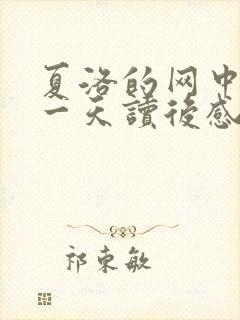 夏洛的网中
一天讀後感
祁東敏